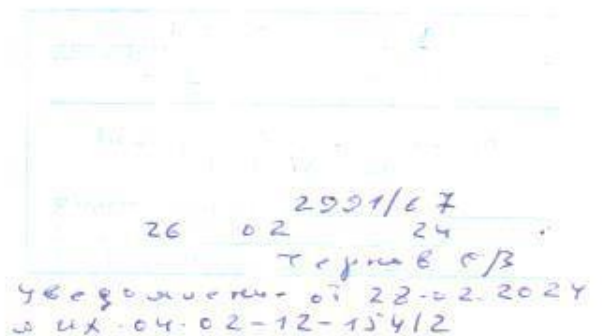 2991/67
26 02 24
Чернов С/В
Уведомление от 22.02.2024
исх.04-02-12-154/2